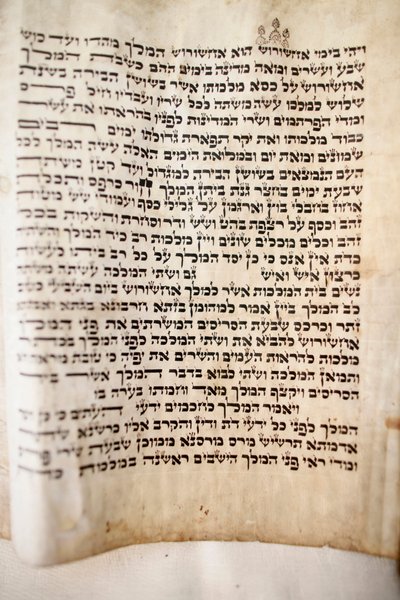 ויהי בימי אחשורוש הוא אחשורוש המלך מהדו ועד כוש
שבע ועשרים ומאה מדינה בימים ההם כשבת המלך
אחשורוש על כסא מלכותו אשר בשושן הבירה בשנת
שלוש למלכו עשה משתה לכל שריו ועבדיו חיל פרס
ומדי הפרתמים ושרי המדינות לפניו בהראתו את עשר
כבוד מלכותו ואת יקר תפארת גדולתו ימים רבים
שמונים ומאת יום ובמלואת הימים האלה עשה המלך לכל
העם הנמצאים בשושן הבירה למגדול ועד קטן משתה
שבעת ימים בחצר גנת ביתן המלך חור כרפס ותכלת
אחוז בחבלי בוץ וארגמן על גלילי כסף ועמודי שש מטות
זהב וכסף על רצפת בהט ושש ודר וסחרת והשקות בכלי
זהב וכלים מכלים שונים ויין מלכות רב כיד המלך והשתיה
כדת אין אנס כי כן יסד המלך על כל רב ביתו לעשות
כרצון איש ואיש גם ושתי המלכה עשתה משתה
נשים בית המלכות אשר למלך אחשורוש ביום השביעי כטוב
לב המלך ביין אמר למהומן בזתא חרבונא בגתא ואבגתא
זתר וכרכס שבעת הסריסים המשרתים את פני המלך
אחשורוש להביא את ושתי המלכה לפני המלך בכתר
מלכות להראות העמים והשרים את יפיה כי טובת מראה היא
ותמאן המלכה ושתי לבוא בדבר המלך אשר ביד
הסריסים ויקצף המלך מאד וחמתו בערה בו
ויאמר המלך לחכמים ידעי העתים כי כן דבר
המלך לפני כל ידעי דת ודין והקרב אליו כרשנא שתר
אדמתא תרשיש מרס מרסנא ממוכן שבעת שרי פרס
ומדי ראי פני המלך הישבים ראשנה במלכות